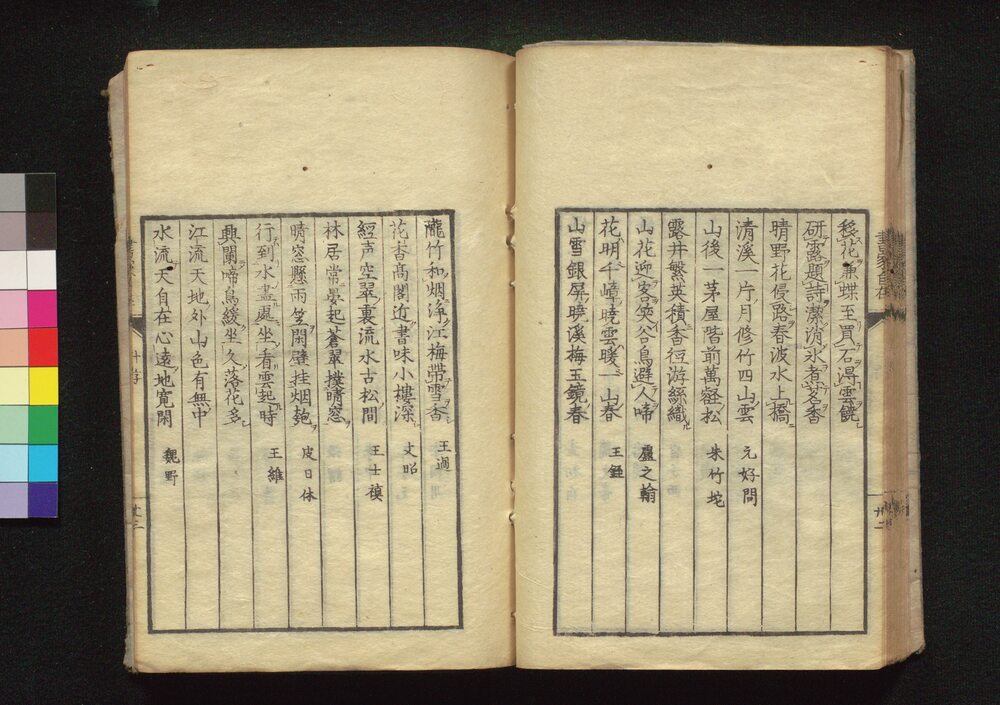 移花兼蝶至買石得雲饒
研露題詩潔消氷煮茗香
晴野花侵路春波水上橋
清溪一片月修竹四山雲 元好問
山後一茅屋階前萬壑松 朱竹垞
露井繁英積香徑游絲織
山花迎客笑谷鳥避人啼 盧之翰
花明千嶂曉雲暖一山春 王鍾
山雪銀屏曉溪梅玉鏡春
隴竹和烟淨江梅帶雪香 王適
花香高閣近書味小樓深 文昭
經声空翠裏流水古松間 王士禛
林居常晏起蒼翠撲晴窓
晴窓懸雨笠閑壁挂烟匏 皮日休
行到水盡處坐看雲起時 王維
興闌啼鳥緩坐久落花多
江流天地外山色有無中
水流天自在心遠地寬閑 魏野
廿二
廿三